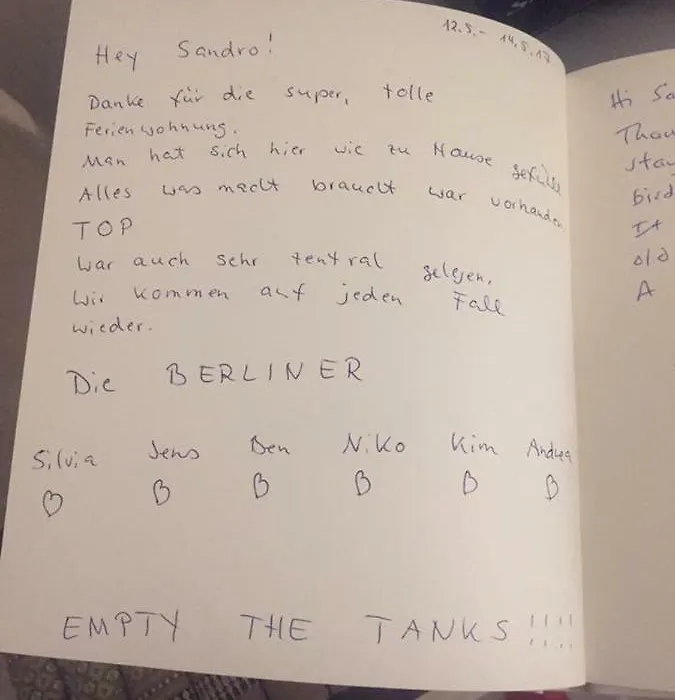 12.5. - 14.5.17
Hey Sandro!
Danke für die super, tolle
Ferienwohnung.
Man hat sich hier wie zu Hause gefühlt
Alles was macht braucht war vorhanden
TOP
War auch sehr zentral gelegen.
Wir kommen auf jeden Fall
wieder.
Die BERLINER
Silvia Jens Ben Niko Kim Andrea
EMPTY THE TANKS !!!!
Hi
A